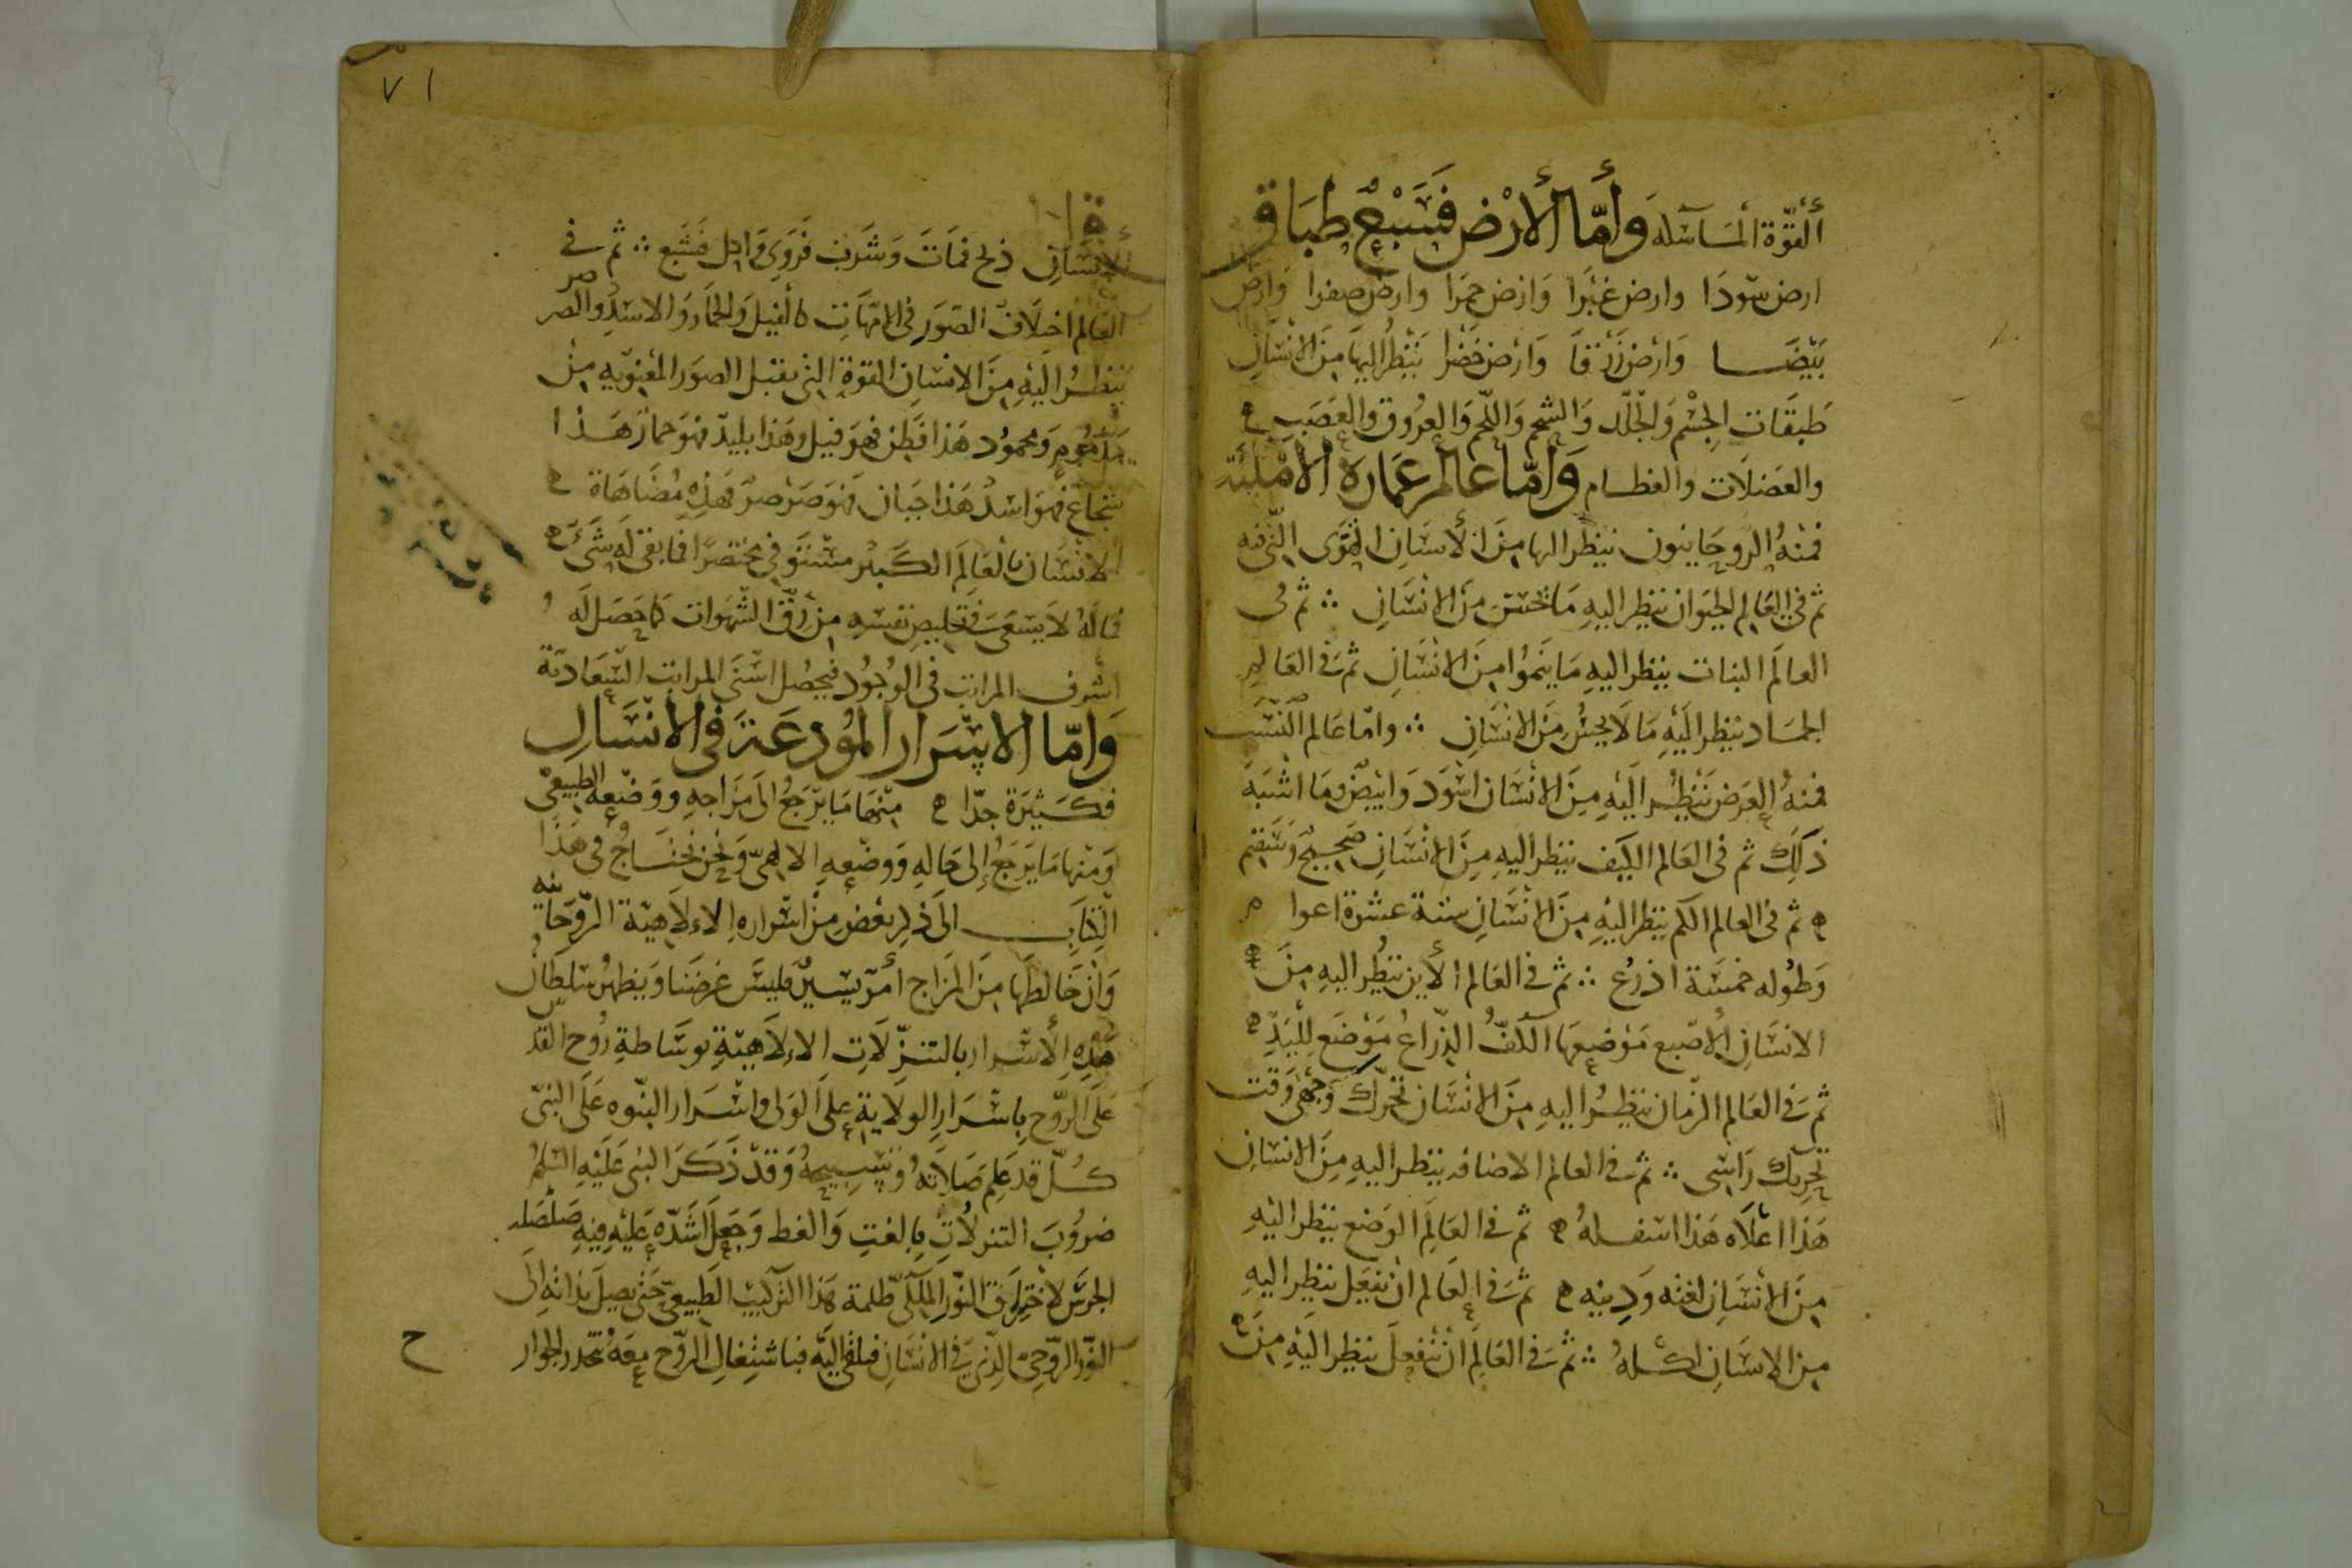 القوّة الماسكه وأمّا الأرْض فسَبْعُ طِبَاقٍ
ارض سّودَا وارض غبْرَا وَارْض حمرَا وارض صفرا وَارْض
بَيْضَا وَارْض زَرْقَا وَارْض خَضْرا يَنْظُر اليهَا مِنَ الانْسَانِ
طَبَقَات الجِسْم وَالجْلّد وَالشحم وَاللّحم وَالعرُوق والعَصَب
والعَضَلَات والعظام وَامّا عالم عَمَارَة الأمْكِنَةِ
فمنْهُ الرّوحَانيون ينظر اليها مِنَ الأنسَانِ القوَى التّي فيه
ثم في العَالم الحيَوان ينظر اليهِ مَا يحسّ مِن الانْسَانِ ∴ ثم في
العالَم النبات ينظر اليهِ مَا يَنمُوا مِنَ الانْسَانِ ثم في العَالم
الجمَاد ينظر الَيْهِ مَا لَا يحِسُّ مِنَ الانْسَانِ ∴ وامّا عَالم النّسَب
فمنهُ العَرَض يَنْظُر الَيْهِ مِنَ الانْسَان اسْوَد وَابْيَضْ وَمَا اشبَهَ
ذَلِكَ ثم في العَالم الكَيف ينظر اليهِ مِنَ الانْسَانِ صَحِيحٌ وَسَقِيم
ثم في العالم الكم ينظر اليْهِ مِنَ الانْسَانِ ستة عشرة اعوا م
وَطُوله خمسَة اذرُع ∴ ثم في العَالم الأين ينظُر اليهِ مِنَ
الانسَانِ الأصّبع مَوْضِعهَا الكفّ الذّرَاعُ مَوْضَع لِلْيَدِّ
ثم في العَالم الزّمان ينظُر اليهِ مِنَ الانْسَان تحرّك وَجْهي وَقت
تحرِيك رَاسي ∴ ثم في العالم الاضافه ينظر اليهِ مِنَ الانسَانِ
هَذا اعْلَاه هَذا اسْفلهُ ثم في العَالِم الوَضع ينظر اليْهِ
مِنَ الانْسَانِ لغته وَدِينِه ثم في العَالم انْ يَفعَل ينظر اليهِ
مِن الانسَانِ اكْلهُ ∴ ثم في العَالِم انْ يَنْفعِلَ ينظِر اليْهِ مِنَ
٧١
الانْسَانِ ذبح فمَاتَ وَشرَبَ فرَوِيَ وَاكل فشَبَع ∴ ثم في
العَالم اختِلَافُ الصّوَر في الامّهَاتِ كالفيل وَالحمَار وَالاسَد والصرصر
ينظُر اليْهِ مِنَ الانْسَانِ القوّة التي تقبل الصوَر المَعْنويّه مِنْ
مَذمُومٍ وَمحمُود هَذا فطِن فهوَ فيل وهَذا بليدّ فهوَ حمارٌ هَذا
شجاعٌ فهوَ اسَدٌ هَذا جبَان فهوَ صَرْصرٌ فهَذِه مُضَاهَاة
الانْسَان بالعَالِم الكَبيْر مسْتَوْفي مختصَرًا فما بقىَ لَه شَيْ
فمَا لَهُ لَا يَسْعَى في تخليصِ نفسِه مِنْ رِقّ الشّهوَات كما حصَل لَه
اشرف المراتب في الوُجُود فيحصُل اسْنَى المراتب السَّعَاديّة
وَامّا الاسْرَار المُودَعَة في الانْسَانِ
فكَثيْرَة جدّا مِنْهَا مَا يَرْجعُ الى مَزَاجهِ ووَضّعِه الطبيعيّ
وَمنْها مَا يَرْجعُ إلى حَالهِ وَوضّعِهِ الالهيّ وَنحْن نَحْتَاجُ في هَذا
الكتَاب الىَ ذكر بَعْضٍ مِنْ اسْرَاره الالَاهيّة الرّوحَانيه
وَانْ خَالطهَا مِنَ المزَاج أمرٌ يَسيرٌ فليسَ غرضَنا وَيظهَرُ سُلطَانُ
هَذِه الأسْرَار بالتنزّلَاتِ الالَاهيّةِ بوسَاطةِ رُوح القدس
عَلَى الرّوح باسْرَار الولَاية عَلى الوَلي واسْرَار النبوه عَلَى النبيّ
كُلّ قد عَلِم صَلَاتهُ وَتَسبيحهُ وَقدْ ذَكَرَ النبي عَلَيهِ السَّلمُ
ضرُوبَ التنزلَاتِ بالغتِ وَالغط وَجَعلَ اشدّه عَليْهِ فيهِ صَلْصَله
الجرَس لاخترَاق النّورِ الملكي ظلمة هَذا التركيب الطبيعيّ حَتّى يصِلَ بذاتهِ الَى
النوّر الرّوحِيّ الذيْ في الانْسَانِ فيلقي اليَّه فباشتِغال الرّوح معهُ تخدر الجوار
ح